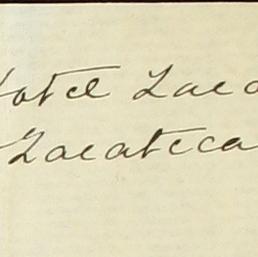 Hotel Zaca
Zacateca